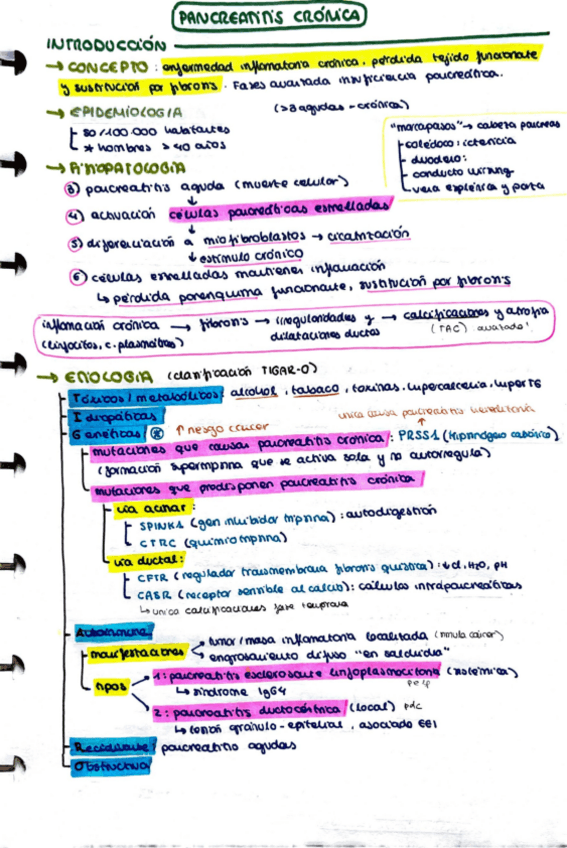 PANCREATITIS CRÓNICA
INTRODUCCIÓN
→ CONCEPTO: enfermedad inflamatoria crónica. pérdida tejido funcionante
y sustitución por fibrosis. Fases avanzada insuficiencia pancreática.
→ EPIDEMIOLOGIA (>3 agudas - crónica)
30/100 000 habitantes
* hombres > 40 años
"marcapasos" → cabeza páncreas
- colédoco: ictericia
- duodeno:
- conducto wirsung
- vena esplénica y porta
→ FISIOPATOLOGIA
3) pancreatitis aguda (muerte celular)
4) activación células pancreáticas estrelladas
5) diferenciación a miofibroblastos → cicatrización
↓ estímulo crónico
6) células estrelladas mantienen inflamación
↳ pérdida parénquima funcionante, sustitución por fibrosis
inflamación crónica → fibrosis → irregularidades y → calcificaciones y atrofia
(linfocitos, c. plasmáticas) dilataciones ductos (TAC) avanzado!
→ ETIOLOGIA (clasificación TIGAR-O)
Tóxicos / metabólicos: alcohol, tabaco, toxinas, hipercalcemia, hiperTG
Idiopáticas
única causa pancreatitis hereditaria
Genéticas ↑ riesgo cáncer
mutaciones que causas pancreatitis crónica: PRSS1 (tripsinógeno catiónico)
(formación supertripsina que se activa sola y no autorregula)
mutaciones que predisponen pancreatitis crónica
vía acinar:
SPINK1 (gen inhibidor tripsina): autodigestión
CTRC (quimiotripsina)
vía ductal:
CFTR (regulador transmembrana fibrosis quística): ↓ cl, H2O, pH
CASR (receptor sensible al calcio): cálculos intrapancreáticos
↳ única calcificaciones fase temprana
Autoinmune
manifestaciones tumor/masa inflamatoria localizada (simula cáncer)
engrosamiento difuso "en salchicha"
tipos 1: pancreatitis esclerosante linfoplasmocitaria (sistémica)
↳ síndrome IgG4 pelp
2: pancreatitis ductocéntrica (local) pdc
↳ lesión gránulo-epitelial, asociado EEI
Recidivante / pancreatitis agudas
Obstructiva